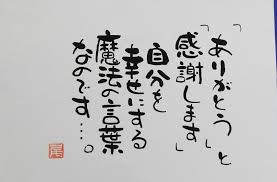 「ありがとう」と
「感謝します」
自分を
幸せにする
魔法の言葉
なのです…。